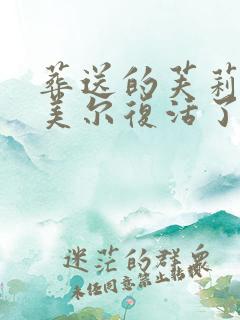 葬送的芙莉
美尔復活了
迷茫的群众
未经同意禁止转载